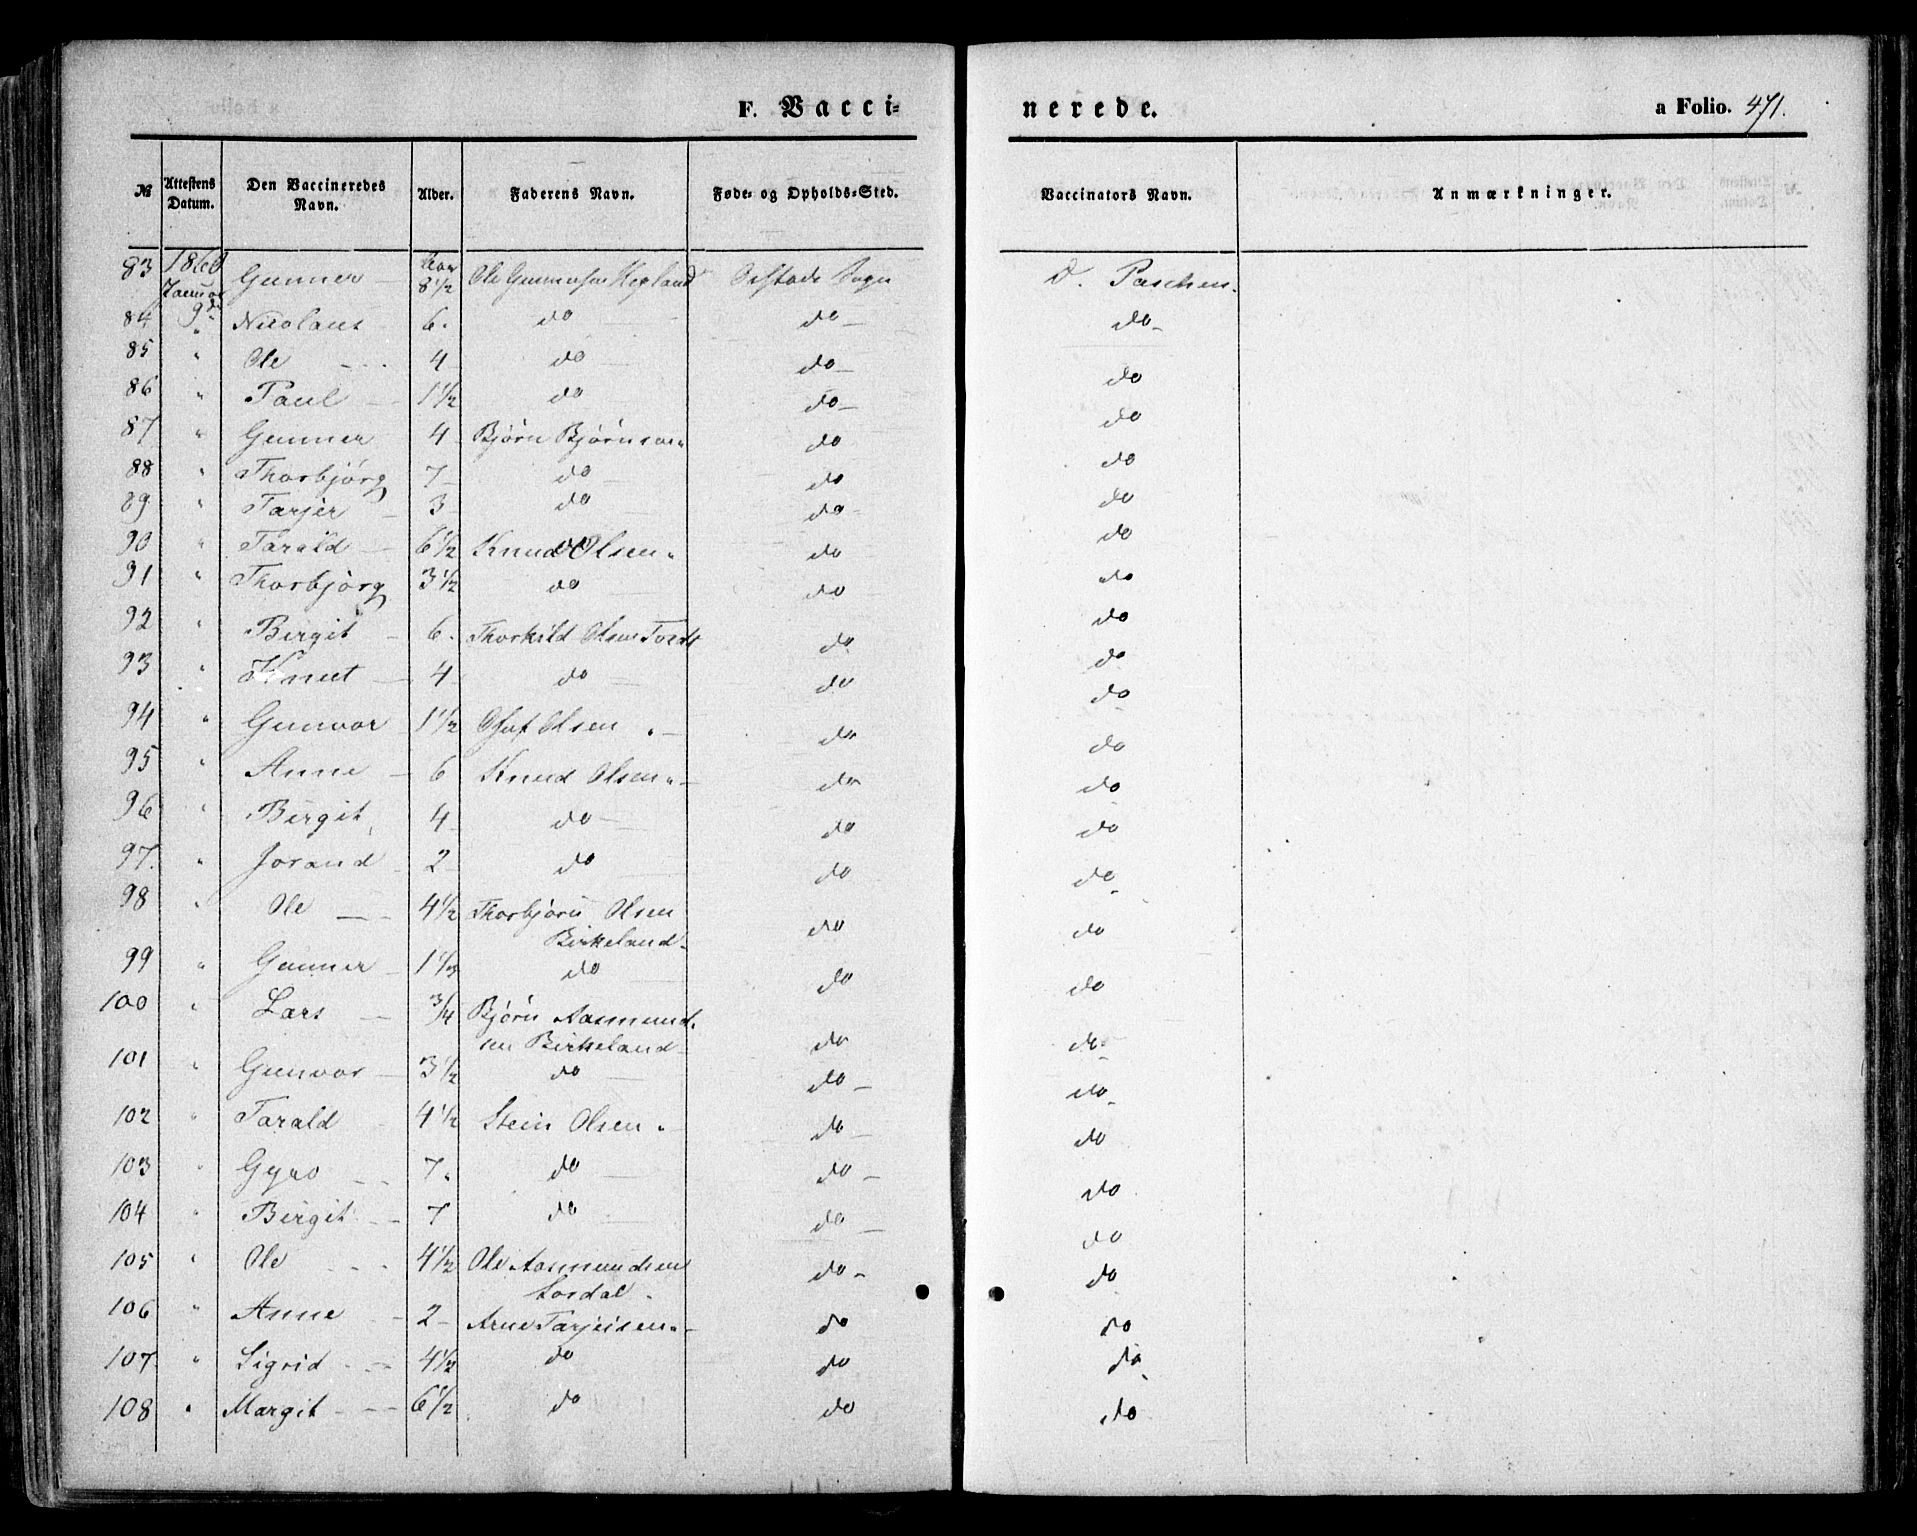 F. Vacci=
nerede.
a Folio. 471.
№ Attestens Datum. Den Vaccineredes Navn. Alder. Faderens Navn. Føde- og Opholds-Sted. Vaccinators Navn. Anmærkninger.
83 1860 Januar 9d Gunner 8 1/2 Ole Gunnersen Sogn D. Paschen.
84 " Nicolaus 6. do do do
85 " Ole 4 do do do
86 " Paul 1 1/2 do do do
87 " Gunner 4 Bjørn Bjørnsen do do
88 " Thorbjørg 7 do do do
89 " Tarjer 3 do do do
90 " Tarald 6 1/2 Knud Olsen do do
91 " Thorbjørg 3 1/2 do do do
92 " Birgit 6. Thorkild Olsen do do
93 " Knut 4 do do do
94 " Gunvor 1 1/2 Oluf Olsen do do
95 " Anne 6 Knud Olsen do do
96 " Birgit 4 do do do
97. " Jorand 2 do do do
98 " Ole 4 1/2 Thorbjørn Olsen
Birkeland do do
99 " Gunner 1 1/2 do do do
100 " Lars 3/4 Bjørn Aasmund-
sen Birkeland do do
101 " Gunvor 3 1/2 do do do
102 " Tarald 4 1/2 Stein Olsen do do
103 " Gyro 7. do do do
104 " Birgit 7 do do do
105 " Ole 4 1/2 Ole Aasmundsen
do do
106 " Anne 2 Arne Tarjeisen do do
107 " Sigrid 4 1/2 do do do
108 " Margit 6 1/2 do do do